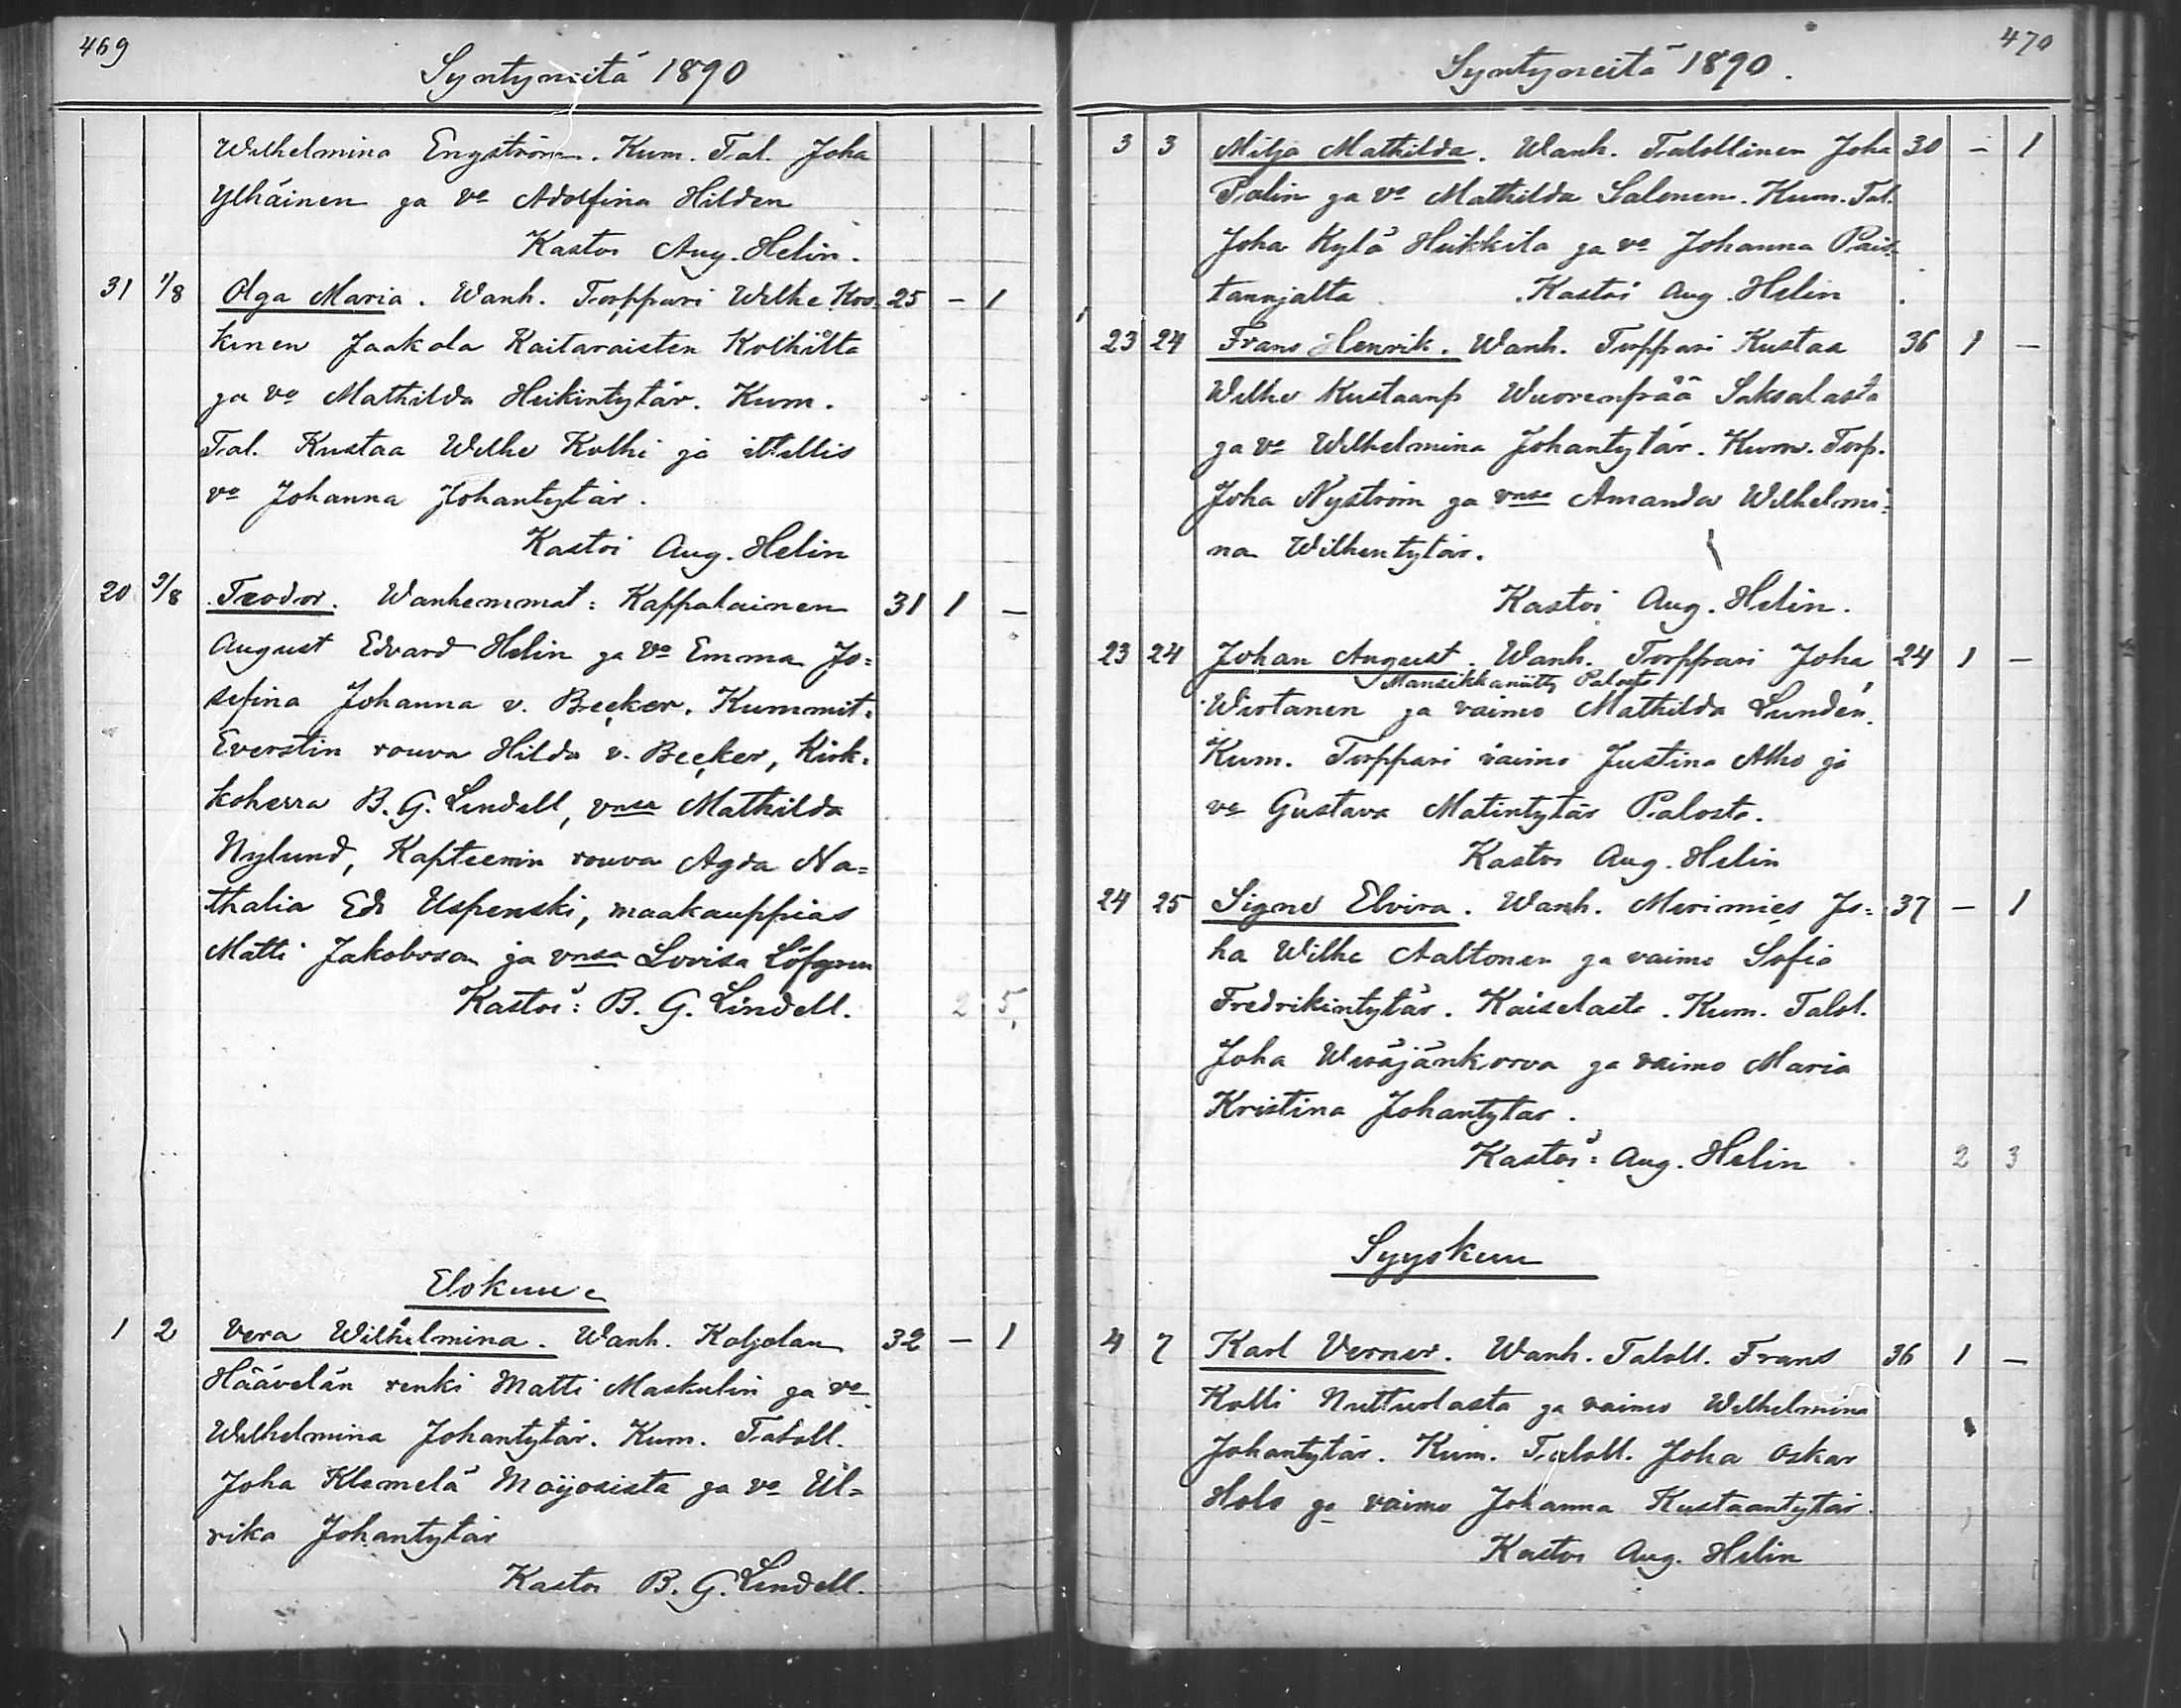 469
Syntyneitä 1890
Wilhelmina Engström. Kum. Tal. Joha
Ylhäinen ja vo Adolfina Hilden
Kastoi Aug. Helin.
31 1/8 Olga Maria. Wanh. Torppari Wilhe Kos- 25 - 1
kinen Jaakola Raitaraisten Kolhilta
ja vo Mathilda Heikintytär. Kum.
Tal. Kustaa Wilhe Kolhi ja itellis
vo Johanna Johantytär.
Kastoi Aug. Helin
20 9/8 Teodor. Wanhemmat: Kappalainen 31 1 -
August Edvard Helin ja vo Emma Jo=
sefina Johanna v. Becker. Kummit:
Everstin rouva Hilda v. Becker, Kirk=
koherra B. G. Lindell, vnsa Mathilda
Nylund, Kapteenin rouva Agda Na=
thalia Uspenski, maakauppias
Matti Jakobsson ja vnsa Lovisa Löfgren
Kastoi: B. G. Lindell. 2 5
Elokuu
1 2 Vera Wilhelmina. Wanh. Koljolan 32 - 1
Häävelän renki Matti Maskulin ja vo
Wilhelmina Johantytär. Kum. Taloll.
Joha Klemelä Moijosista ja vo Ul=
rika Johantytär
Kastoi B. G. Lindell.
470
Syntyneitä 1890.
3 3 Milja Mathilda. Wanh. Talollinen Joha 30 - 1
Palin ja vo Mathilda Salonen. Kum. Tal.
Joha Kylä Heikkilä ja vo Johanna Pais=
tanojalta Kastoi Aug. Helin
23 24 Frans Henrik. Wanh. Torppari Kustaa 36 1 -
Wilhe Kustaanp Wuorenpää Saksalasta
ja vo Wilhelmina Johantytär. Kum. Torp.
Joha Nyström ja vnsa Amanda Wilhelmi=
na Wilhentytär.
Kastoi Aug. Helin.
23 24 Johan August. Wanh. Torppari Joha 24 1 -
Mansikkaniitty Palosta
Wirtanen ja vaimo Mathilda Lunden.
Kum. Torppari vaimo Justina Alho ja
vo Gustava Matintytär Palosta.
Kastoi Aug. Helin
24 25 Signe Elvira. Wanh. Merimies Jo= 37 - 1
ha Wilhe Aaltonen ja vaimo Sofia
Fredrikintytär. Kaiselasta. Kum. Talol.
Joha Weräjänkorva ja vaimo Maria
Kristina Johantytar.
Kastoi: Aug. Helin 2 3
Syyskuu
4 7 Karl Verner. Wanh. Taloll. Frans 36 1 -
Kolli Nuttuolasta ja vaimo Wilhelmina
Johantytär. Kum. Taloll. Joha Oskar
Holo ja vaimo Johanna Kustaantytär.
Kastoi Aug. Helin